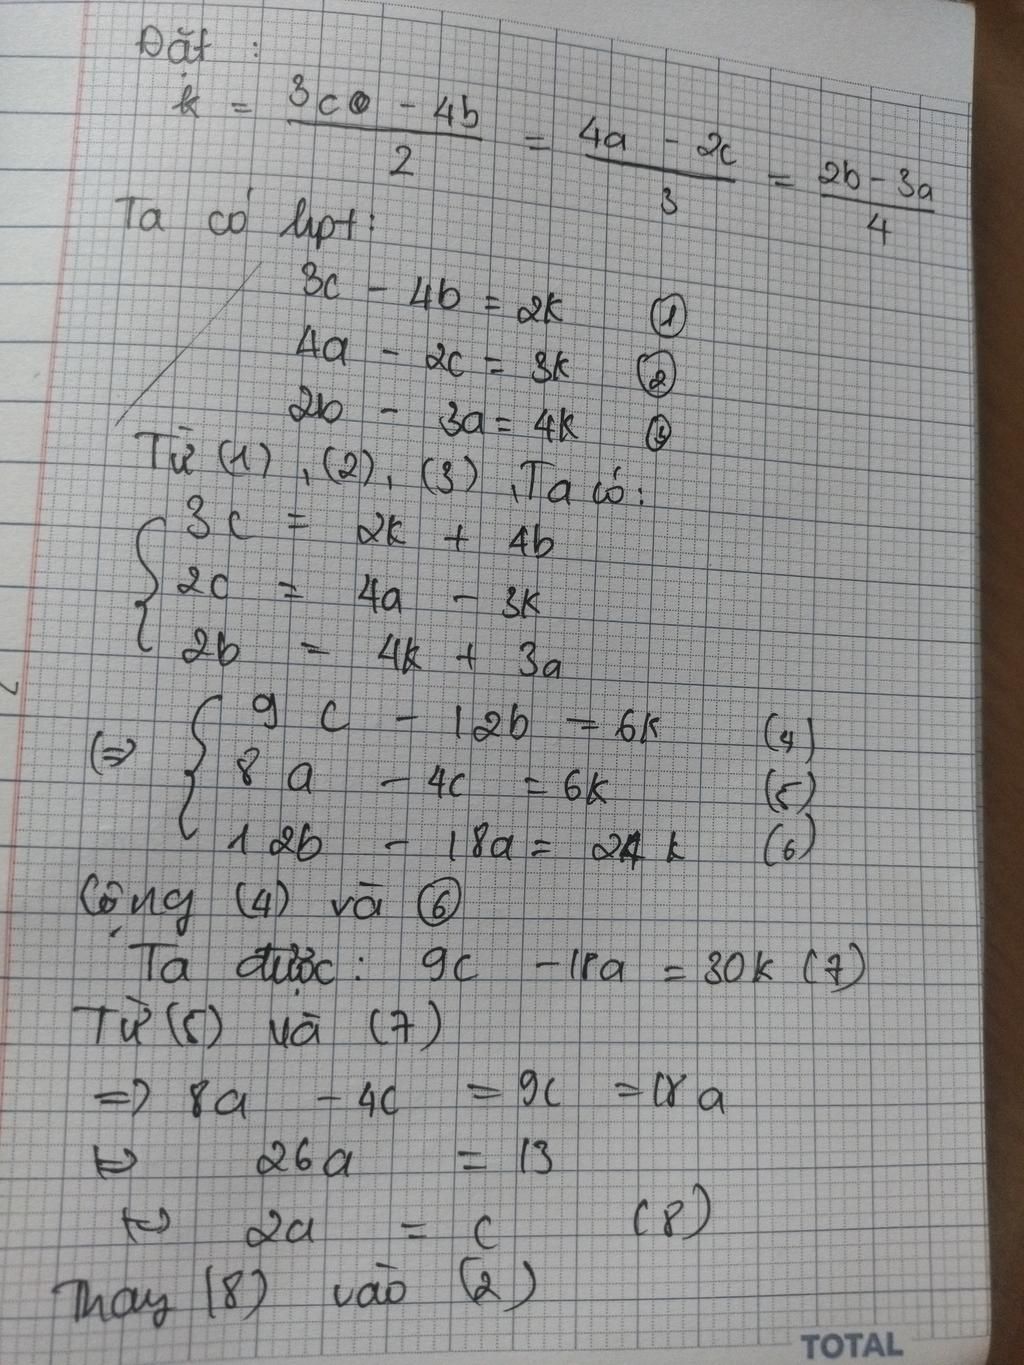 Đặt :
k = 3c - 4b / 2 = 4a - 2c / 3 = 2b - 3a / 4
Ta có hpt:
3c - 4b = 2k (1)
4a - 2c = 3k (2)
2b - 3a = 4k (3)
Từ (1), (2), (3), Ta có:
3c = 2k + 4b
2c = 4a - 3k
2b = 4k + 3a
(=> 9c - 12b = 6k (4)
8a - 4c = 6k (5)
12b - 18a = 24k (6)
Cộng (4) và (6)
Ta được: 9c - 18a = 30k (7)
Từ (5) và (7)
=> 8a - 4c = 9c = 18a
<=> 26a = 13
<=> 2a = c (8)
Thay (8) vào (2)
TOTAL